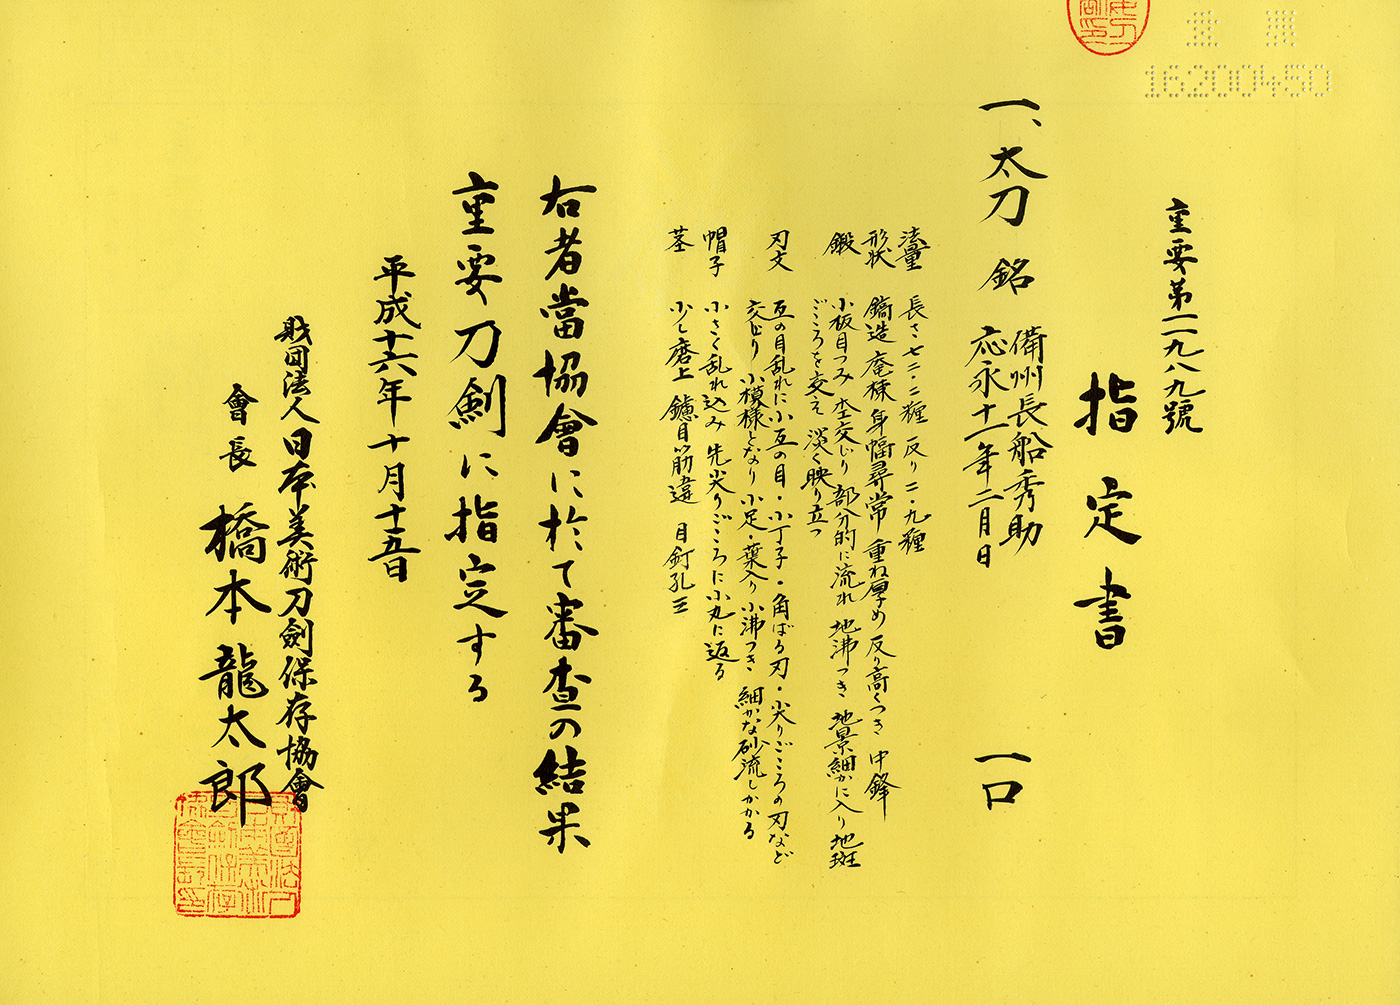 重要
16200450
重要第一一九八九號
指定書
一、太刀 銘 備州長船秀助 一口
応永十一年二月日
法量 長さ七二・二糎 反り二・九糎
形状 鎬造 庵棟 身幅尋常 重ね厚め 反り高くつき 中鋒
鍛 小板目つみ 杢交じり 部分的に流れ 地沸つき 地景細かに入り 地斑
ごころを交え 淡く映り立つ
刃文 互の目乱れに小互の目・小丁子・角ばる刃・尖りごころの刃など
交じり 小模様となり 小足・葉入り 小沸つき 細かな砂流しかかる
帽子 小さく乱れ込み 先尖りごころに小丸に返る
茎 少し磨上 鑢目筋違 目釘孔三
右者當協會に於て審査の結果
重要刀剣に指定する
平成十六年十月十五日
財団法人日本美術刀劍保存協會
會長 橋本龍太郎